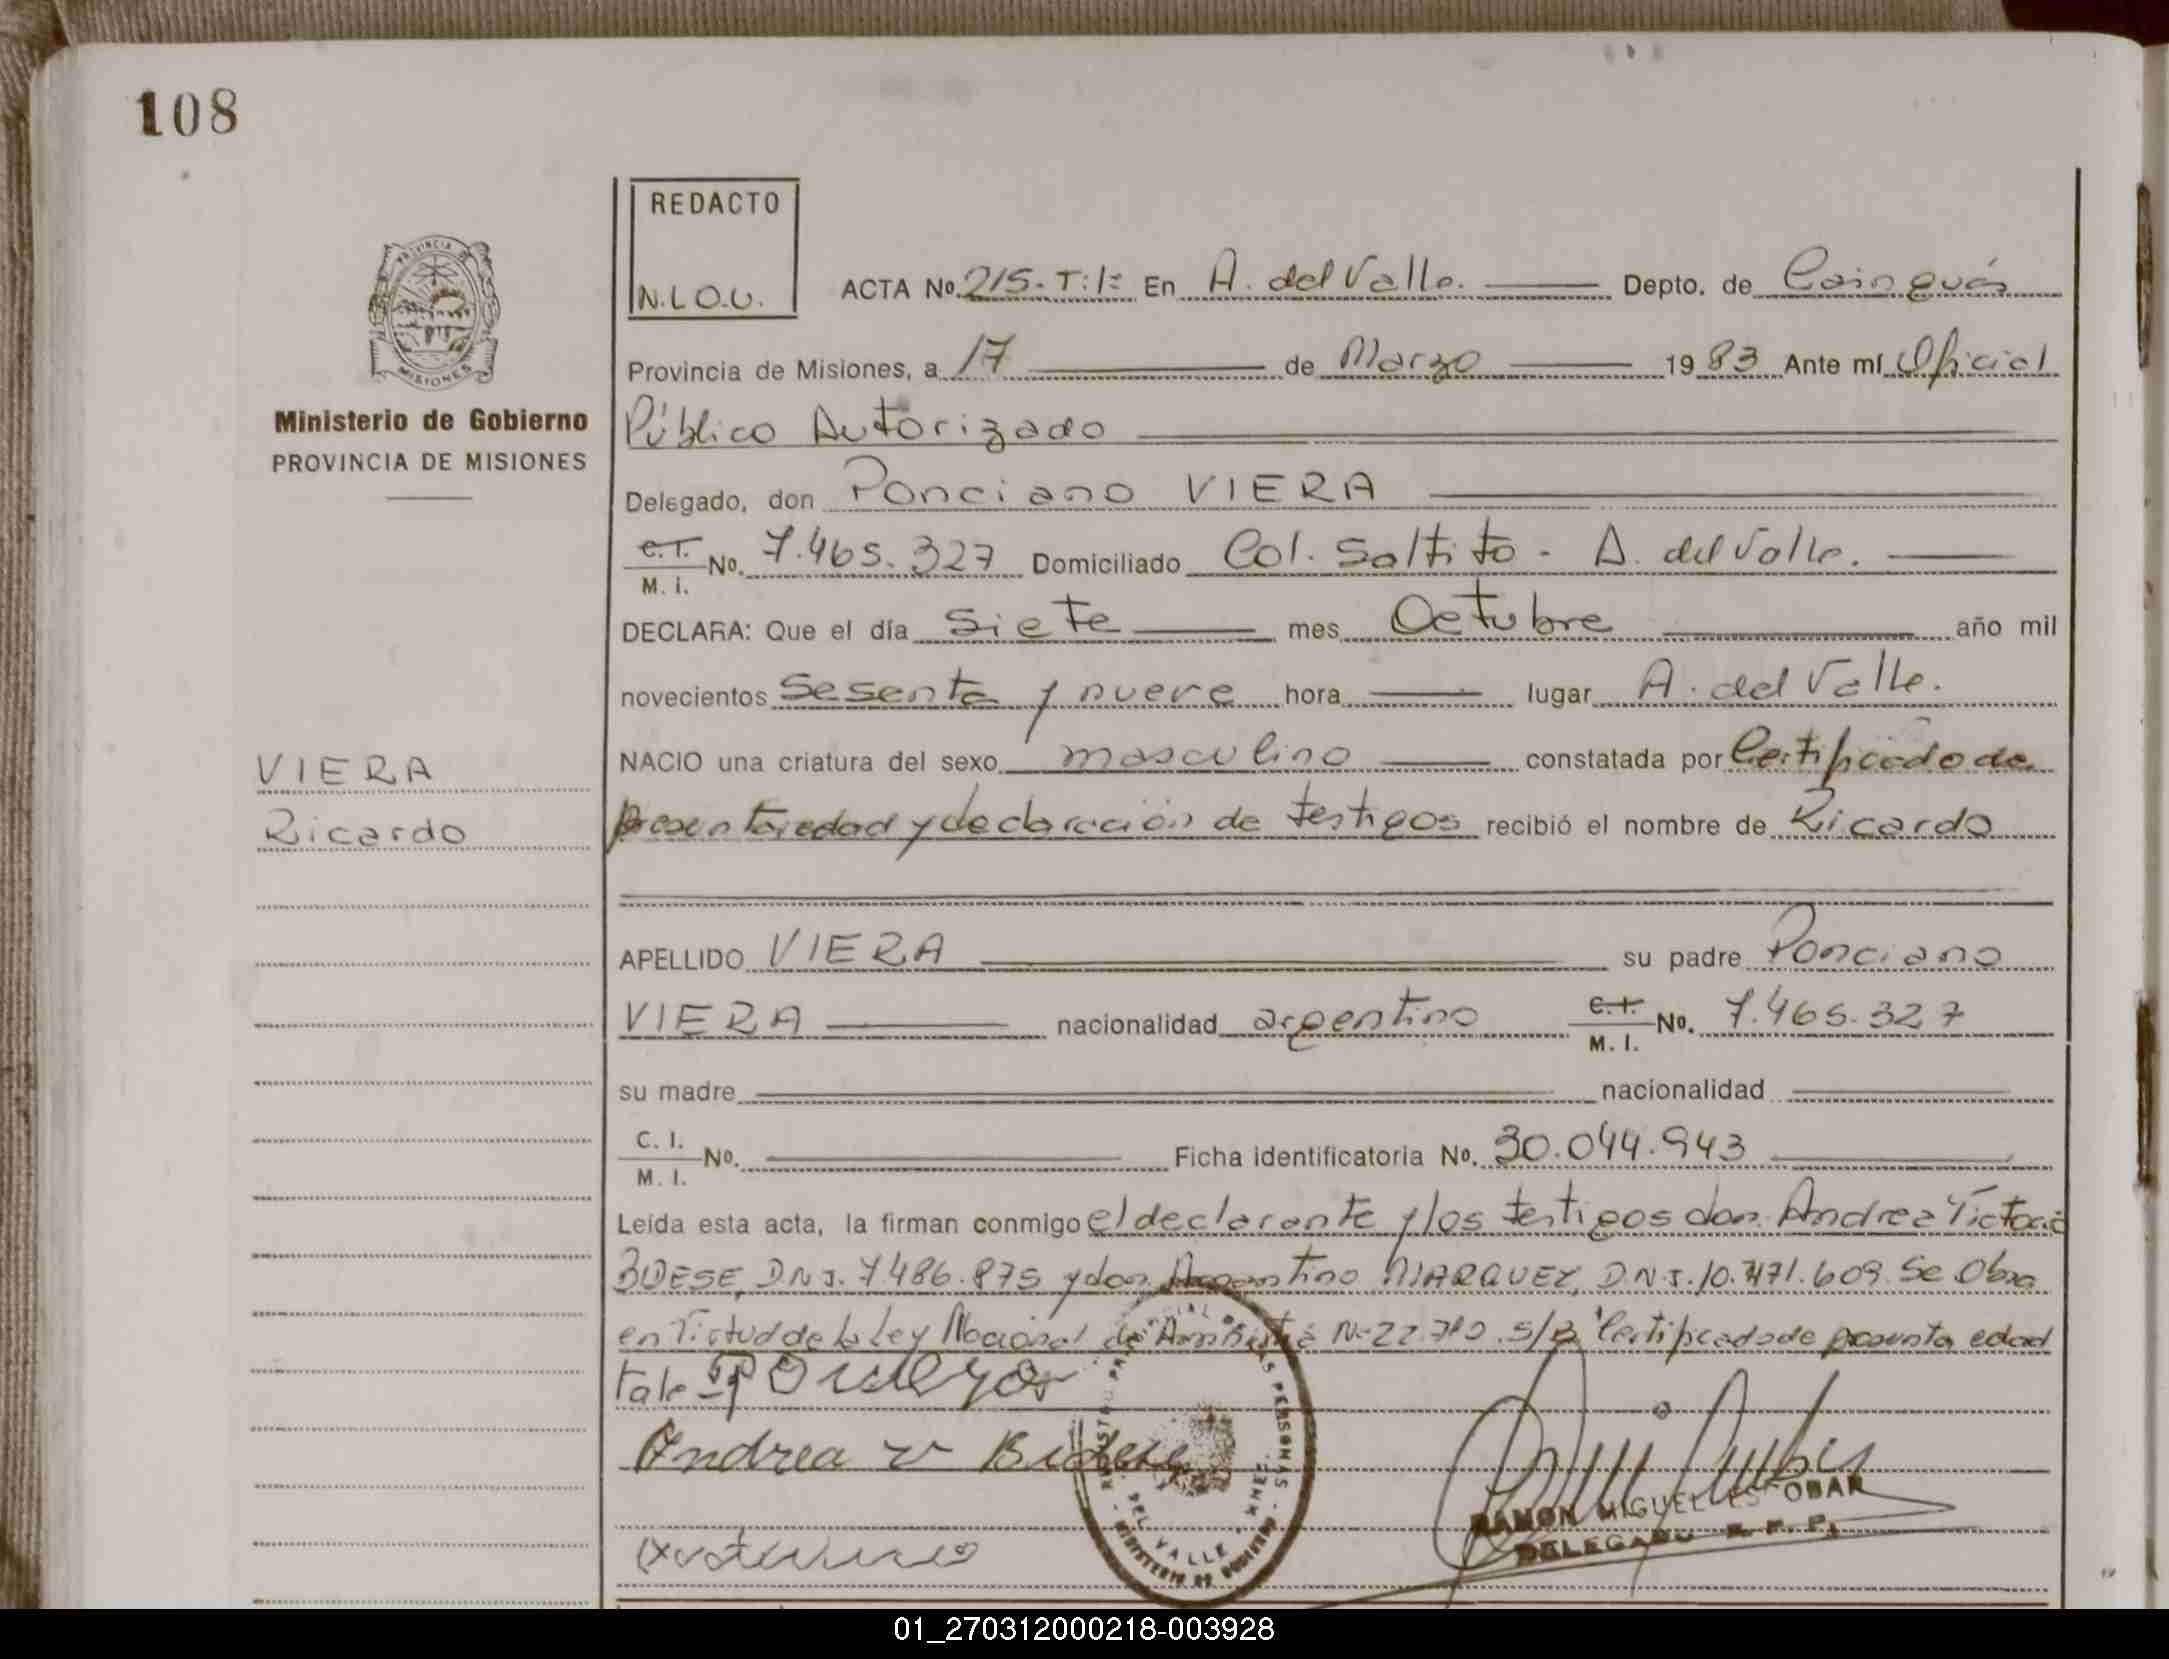 108
REDACTO
N.L.O.U.
ACTA No. 215. T: 1= En A. del Valle. Depto. de Cainguás
PROVINCIA DE
MISIONES
Provincia de Misiones, a 17 de Marzo 1983 Ante mí Oficial
Ministerio de Gobierno
PROVINCIA DE MISIONES
Público Autorizado
Delegado, don Ponciano VIERA
C.I.
M. I. No. 7.465.327 Domiciliado Col. Saltito - A. del Valle.
DECLARA: Que el día Siete mes Octubre año mil
novecientos Sesenta y nueve hora lugar A. del Valle.
VIERA
Ricardo
NACIO una criatura del sexo masculino constatada por Certificado de
presenta edad y declaración de testigos recibió el nombre de Ricardo
APELLIDO VIERA su padre Ponciano
VIERA nacionalidad argentino C.I.
M. I. No. 7.465.327
su madre nacionalidad
C. I.
M. I. No. Ficha identificatoria No. 30.044.943
Leída esta acta, la firman conmigo el declarante y los testigos don Andrea
DNI. 7.486.875 y don Argentino MARQUEZ, D.N.I. Se Obra
en Virtud de la Ley Nacional de Amnistía Nº 22. S/B Certificado de presunta edad
tale
Andrea v
DEL VALLE
MINISTERIO DE GOBIERNO
PERSONAS
RAMON MIGUEL ESCOBAR
DELEGADO R. P. P.
01_270312000218-003928